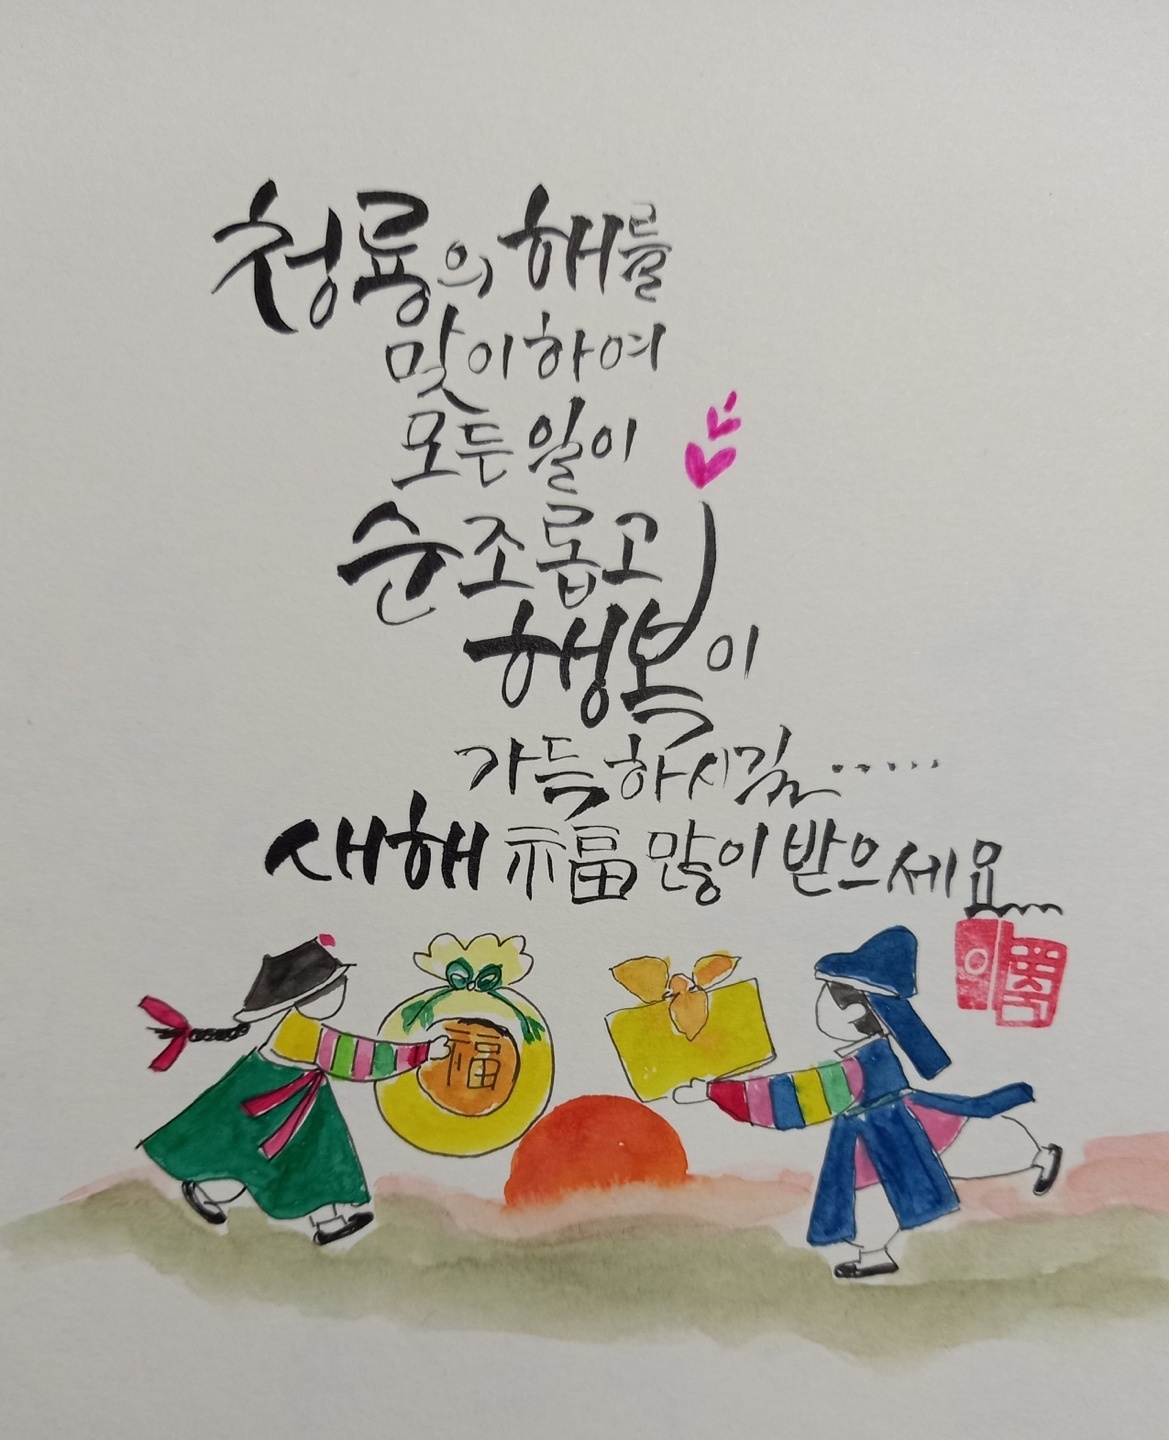 청룡의 해를
맞이하여
모든 일이
순조롭고
행복이
가득하시길.....
새해 福 많이 받으세요
福